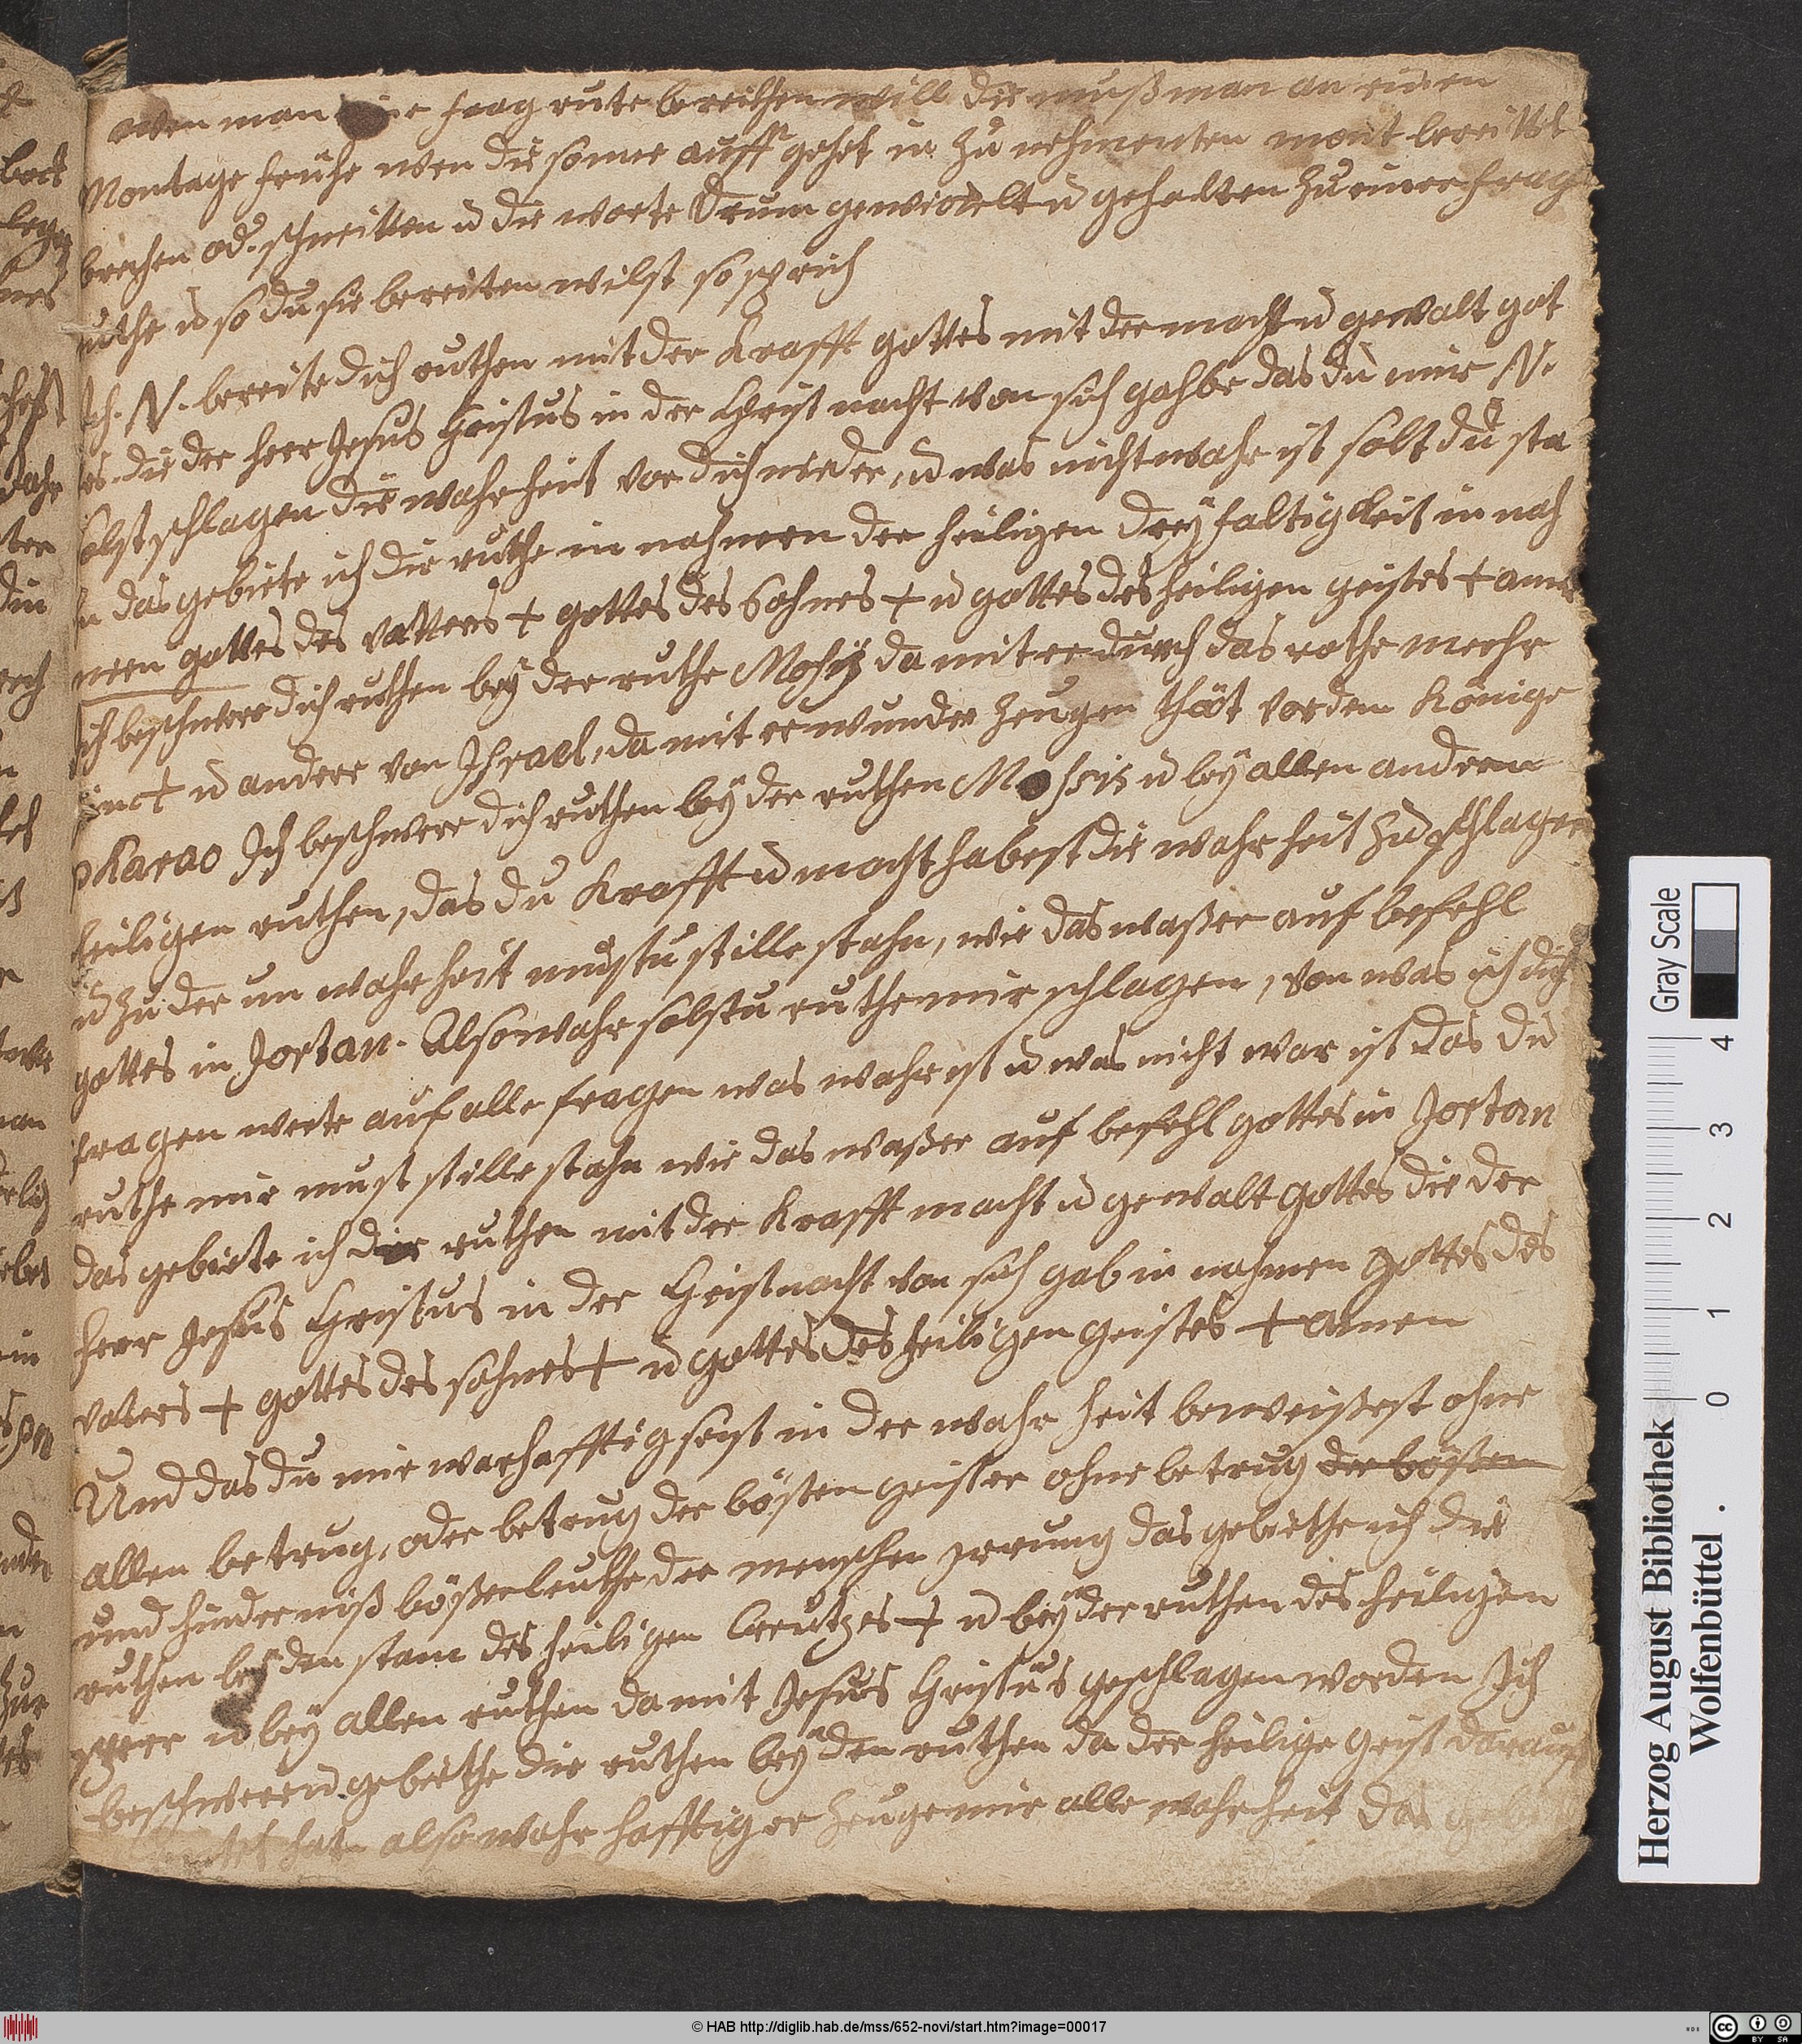 wen man eine frag rute bereithen will die muß man an einen
Montage frühe wen die sonne auff gehet in zu nehmenten mont bereittet
brechen od. schneitten u die worte drum gewickelt u gehalten zu einer frag
ruthe u so du sie bereiten wilst so sprich
Ich. N. bereite dich ruthen mit der Krafft gottes mit der macht u gewalt got
es. die der herr Jesus Christus in der Christ nacht von sich gahbe das du mir N.
solst schlagen die wahrheit vor dich nieder, u was nicht wahr ist solt du sta
n das gebiete ich die ruthe in nahmen der heiligen dreÿfaltigkeit in nah
men gottes des vatters + gottes des Sohnes + u gottes des heiligen geistes + amen
ich beschwere dich ruthen beÿ der ruthe Mosis da mit er durch das rothe meehr
und andere von Jsrael, da mit er wunder zeugen thät vor dem Könige
pharao Ich beschwere dich ruthen beÿ der ruthen Mosis u beÿ allen andern
heiligen ruthen, das du Krafft u macht habest die wahrheit zu schlagen
u zu der un wahrheit mustu stille stahn, wie das waßer auf befehl
gottes in Jortan. Also wahr solstu ruthe mir schlagen, von was ich dich
fragen werte auf alle fragen was wahr ist u was nicht war ist das du
ruthe mir must stille stahn wie das waßer auf befehl gottes in Jortan
das gebiete ich dir ruthen mit der Krafft macht u gewalt gottes die der
herr Jesus Christus in der Christnacht von sich gab in nahmen gottes des
vaters + gottes des sohnes + u gottes des heiligen geistes + amen
Und das du mir warhafftig seist in der wahrheit beweißest ohne
allen betrug, oder betrug der bößen geister ohne betrug der bößen
und hinderniß bößer leuthe der menschen irrung das gebiethe ich die
ruthen beÿ den stam des heiligen Creutzes + u beÿ der ruthen des heiligen
u beÿ allen ruthen da mit Jesus Christus geschlagen worden Ich
beschwere u gebiethe die ruthen beÿ den ruthen da der heilige geist darauf
hat also wahrhafftiger zeuge mir alle wahrheit das
Herzog August Bibliothek
Wolfenbüttel
Gray Scale
0 1 2 3 4
© HAB http://diglib.hab.de/mss/652-novi/start.htm?image=00017